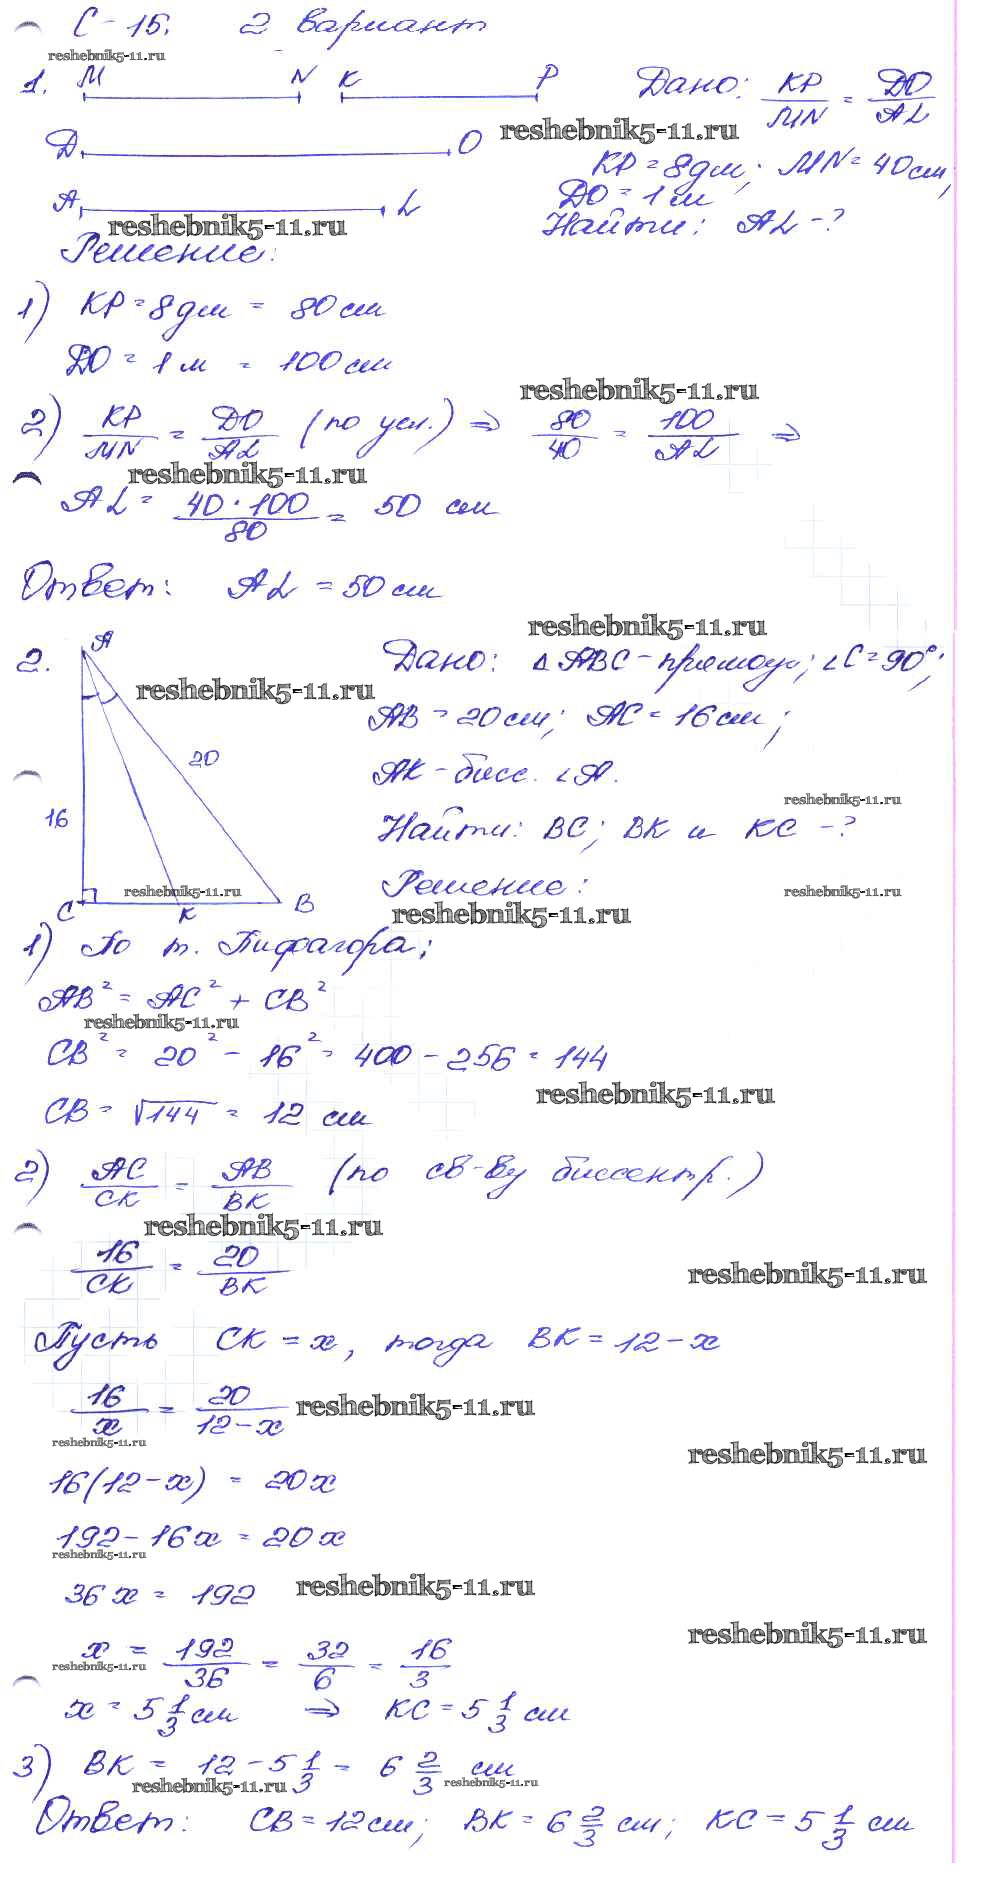 С-15. 2 вариант
reshebnik5-11.ru
1. M N K P Дано: KP/MN = DO/AL
reshebnik5-11.ru
D O KP = 8дм; MN = 40см;
DO = 1 м
A L Найти: AL - ?
reshebnik5-11.ru
Решение:
1) KP = 8дм = 80 см
DO = 1 м = 100 см
reshebnik5-11.ru
2) KP/MN = DO/AL (по усл.) ⇒ 80/40 = 100/AL ⇒
reshebnik5-11.ru
AL = 40·100/80 = 50 см
Ответ: AL = 50 см
reshebnik5-11.ru
2. A Дано: △ABC - прямоуг; ∠C = 90°;
reshebnik5-11.ru
AB = 20 см; AC = 16 см;
20
AK - бисс. ∠A.
reshebnik5-11.ru
16 Найти: BC; BK и KC - ?
Решение:
reshebnik5-11.ru reshebnik5-11.ru
C K B
reshebnik5-11.ru
1) По т. Пифагора:
AB² = AC² + CB²
reshebnik5-11.ru
CB² = 20² - 16² = 400 - 256 = 144
reshebnik5-11.ru
CB = √144 = 12 см
2) AC/CK = AB/BK (по св-ву биссектр.)
reshebnik5-11.ru
16/CK = 20/BK
reshebnik5-11.ru
Пусть CK = x, тогда BK = 12 - x
16/x = 20/12-x
reshebnik5-11.ru
reshebnik5-11.ru
reshebnik5-11.ru
16(12-x) = 20x
192 - 16x = 20x
reshebnik5-11.ru
36x = 192
reshebnik5-11.ru
reshebnik5-11.ru
x = 192/36 = 32/6 = 16/3
reshebnik5-11.ru
x = 5 1/3 см ⇒ KC = 5 1/3 см
3) BK = 12 - 5 1/3 = 6 2/3 см
reshebnik5-11.ru reshebnik5-11.ru
Ответ: CB = 12 см; BK = 6 2/3 см; KC = 5 1/3 см